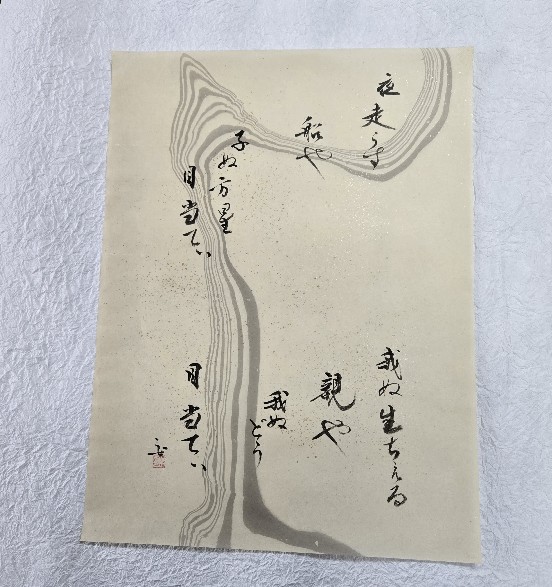 夜走らす
船や
子ぬ方星
目当てぃ
我ぬ生ちぇる
親や
我ぬどぅ
目当てぃ